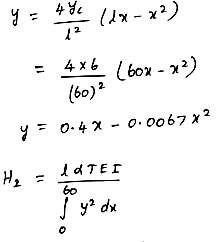 y = 4 yc / l² (lx - x²)
= 4 x 6 / (60)² (60x - x²)
y = 0.4x - 0.0067x²
H₂ = l α T E I / ∫₀⁶⁰ y² dx